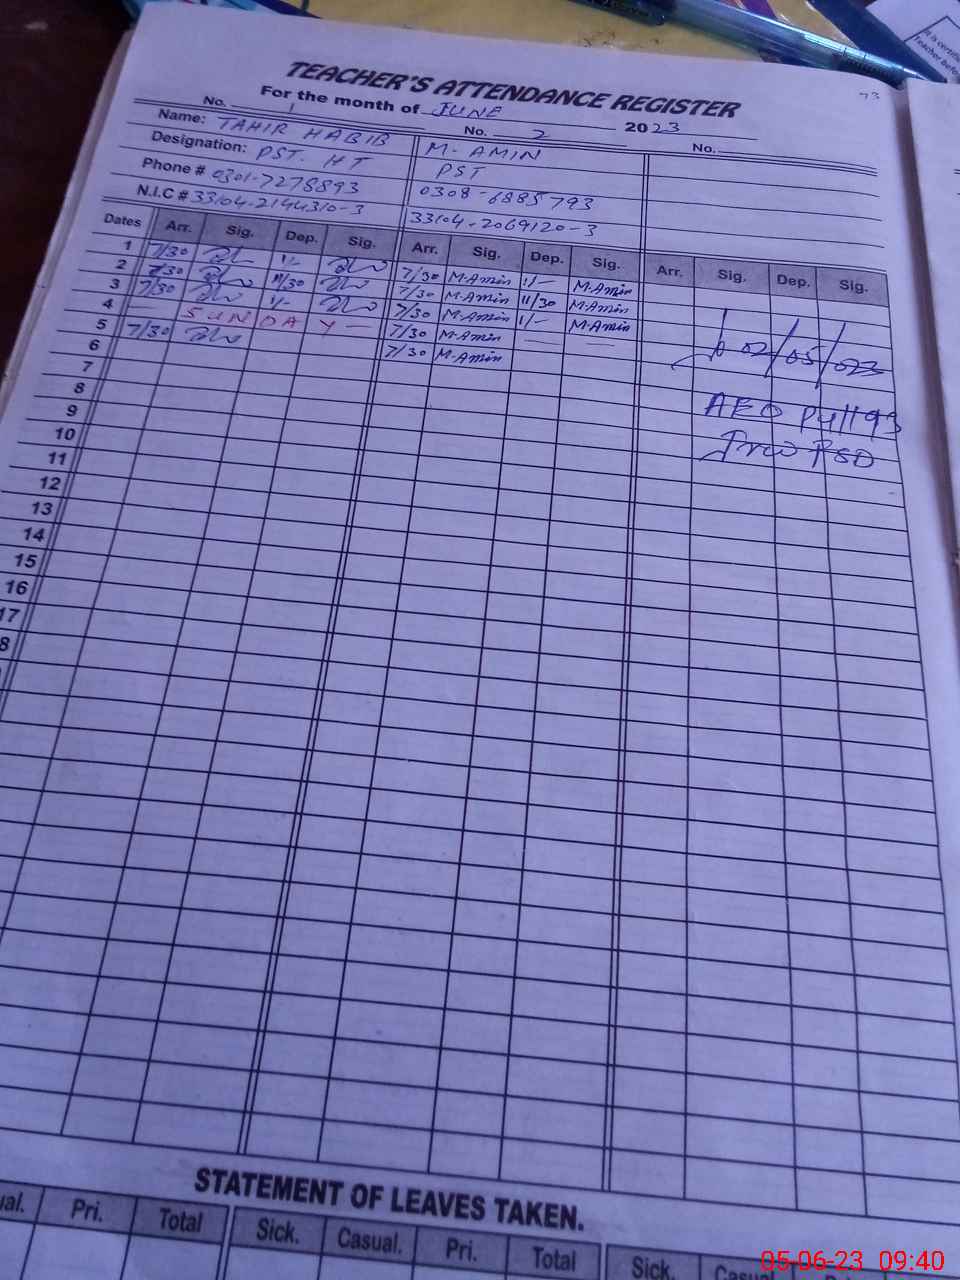 TEACHER'S ATTENDANCE REGISTER
For the month of JUNE 2023
No. 1 No. 2 No.
Name: TAHIR HABIB M. AMIN
Designation: PST. HT PST
Phone # 0301-7278893 0308-6885793
N.I.C # 33104-2144310-3 33104-2069120-3
Dates Arr. Sig. Dep. Sig. Arr. Sig. Dep. Sig. Arr. Sig. Dep. Sig.
1 7/30 1/- 7/30 M.Amin 1/- M.Amin
2 7/30 11/30 7/30 M.Amin 11/30 M.Amin
3 7/30 1/- 7/30 M.Amin 1/- M.Amin
4 SUNDAY - 7/30 M.Amin
5 7/30 7/30 M.Amin
6
7
8
9
10
11
12
13
14
15
16
17
8
02/05/023
AEO
STATEMENT OF LEAVES TAKEN.
ual. Pri. Total Sick. Casual. Pri. Total Sick. Casual
it is certifi
Teacher befo
05-06-23 09:40